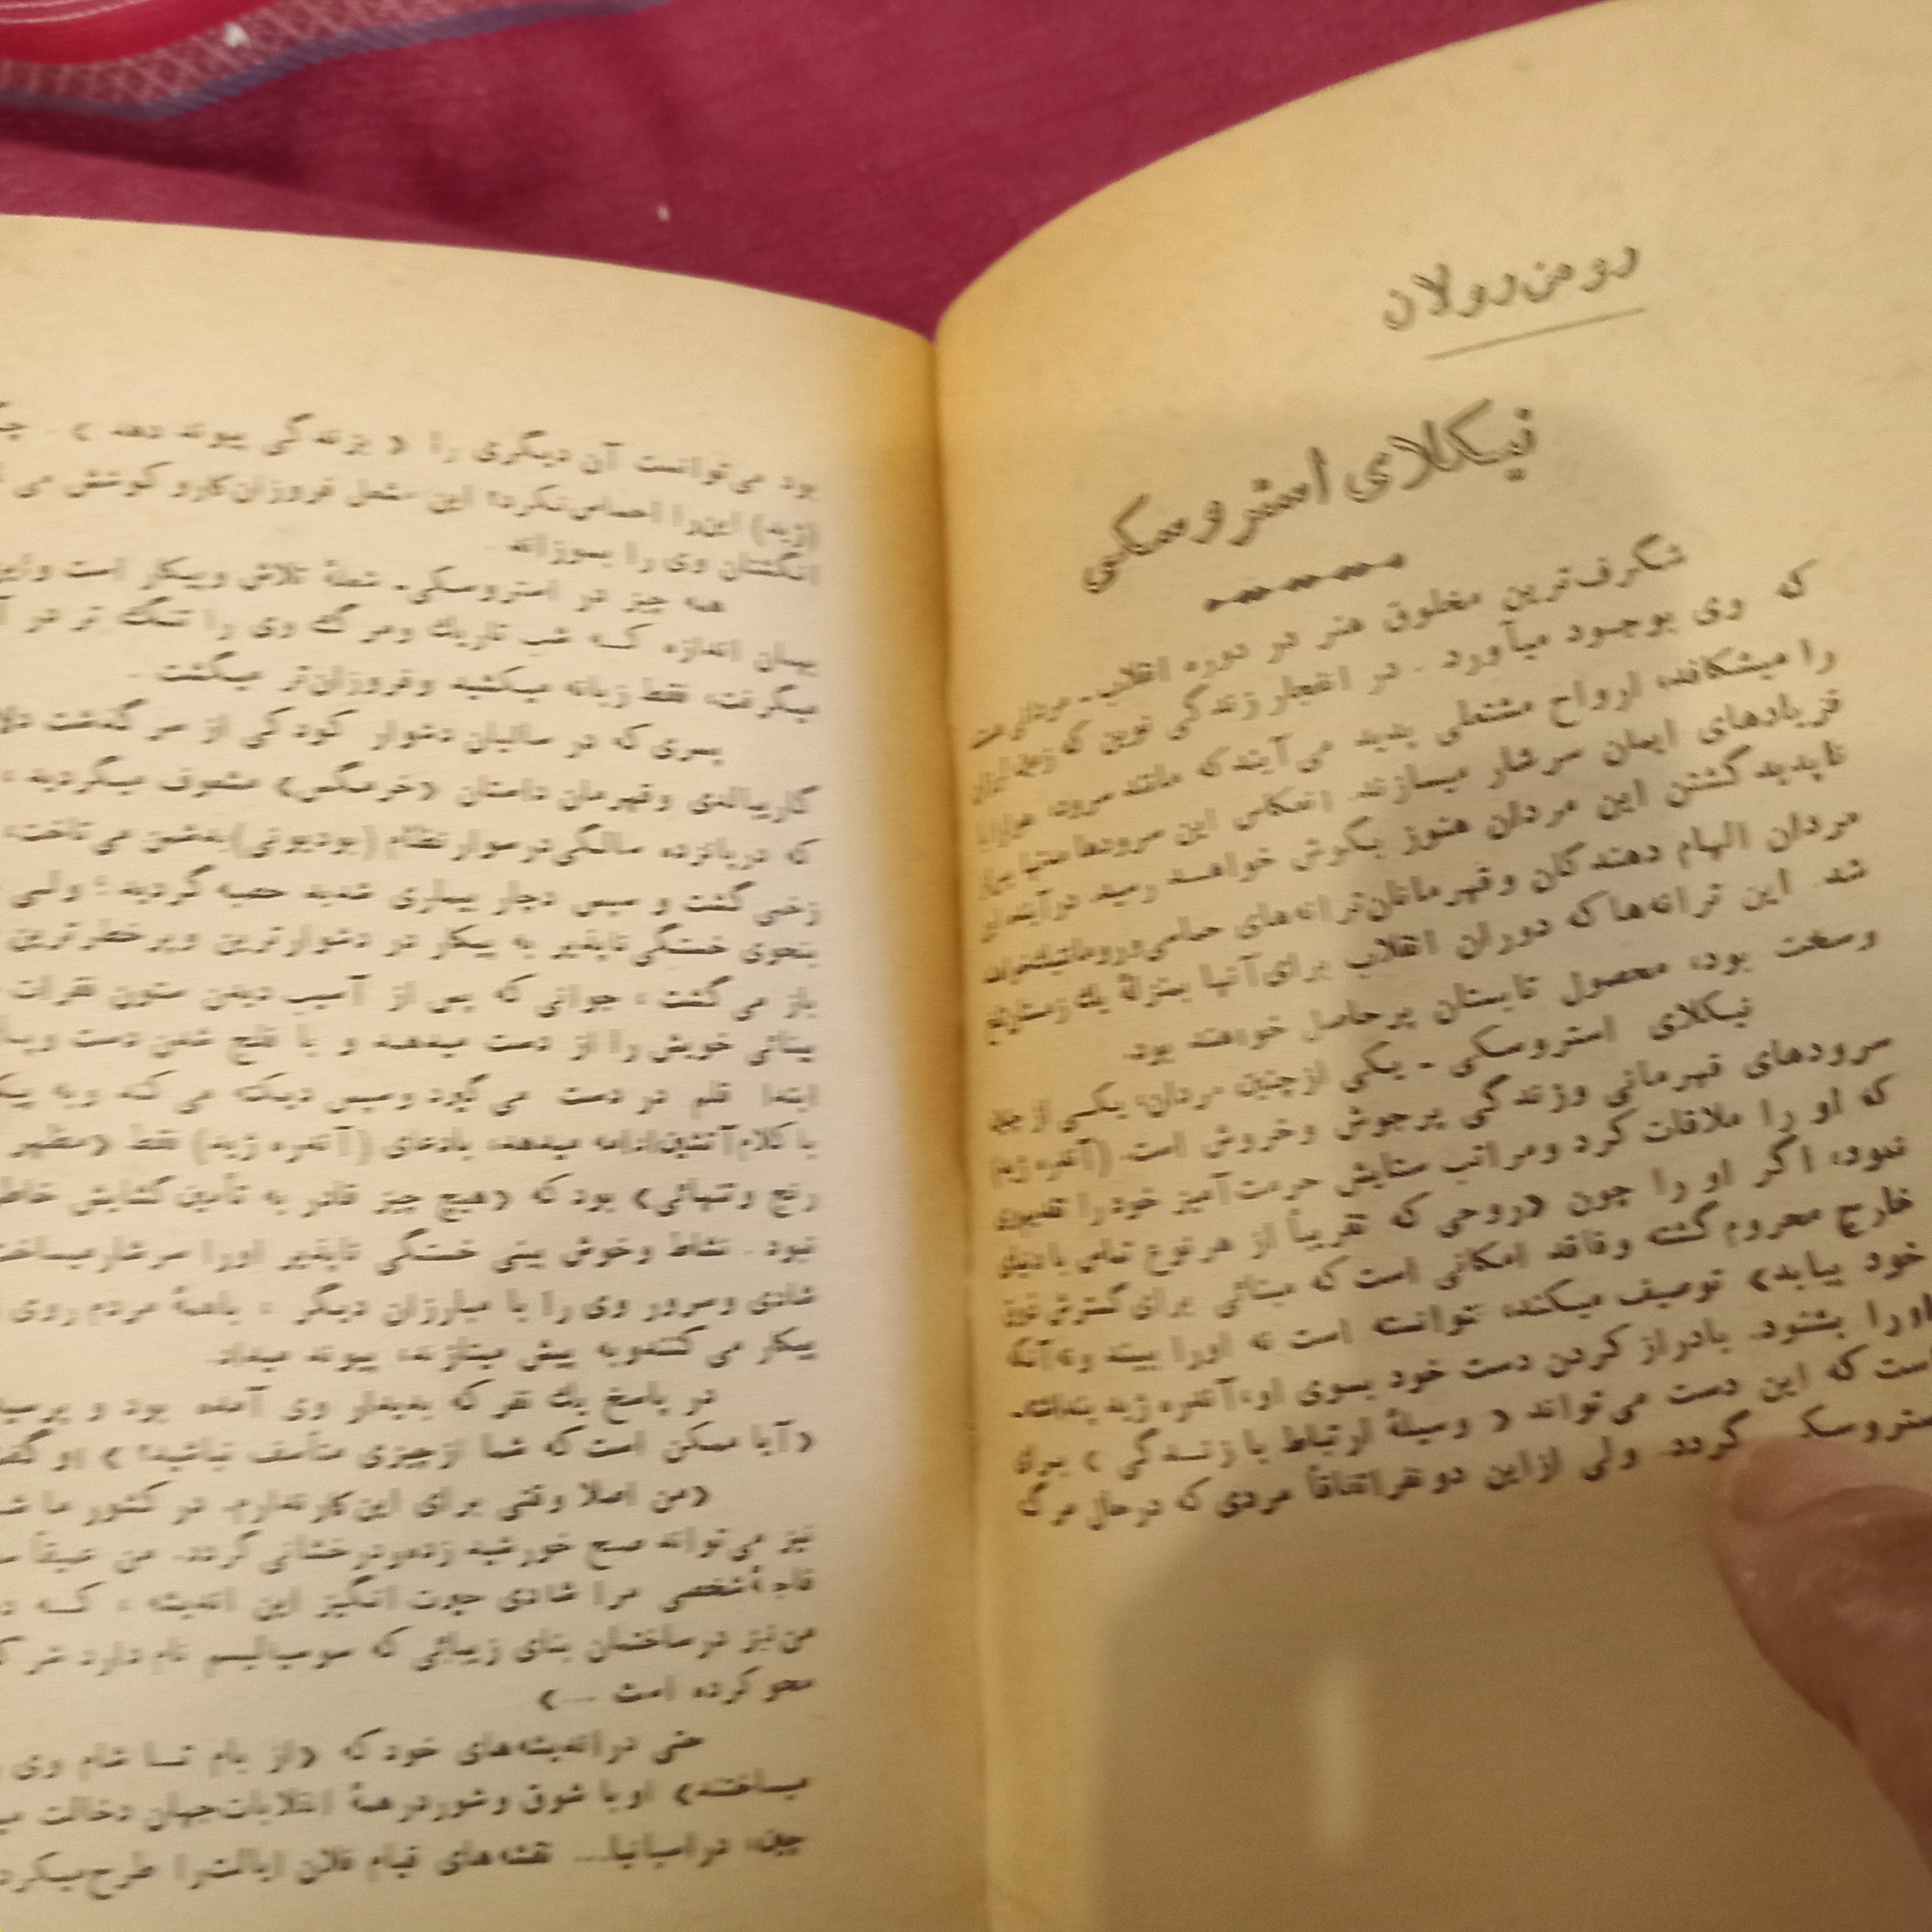 رومن رولان
نیکلای استروسکی
شگرف‌ترین مخلوق هنر در دوره انقلاب ـ مردانی است
که وی بوجود میآورد . در انفجار زندگی نوین که زمین لرزان
را میشکافد، ارواح مشتعلی پدید می‌آیند که مانند سرود، هوا را با
فریادهای ایمان سرشار میسازند. انعکاس این سرودها مدتها پس از
ناپدید گشتن این مردان هنوز بگوش خواهد رسید. در آینده این
مردان الهام دهندگان و قهرمانان ترانه‌های حماسی و رومانتیک خواهند
شد. این ترانه‌ها که دوران انقلاب برای آنها بمنزلهٔ یك زمستان
وسخت بود، محصول تابستان پرحاصل خواهند بود.
نیکلای استروسکی ـ یکی از چنین مردان، یکی از چنین
سرودهای قهرمانی وزندگی پرجوش وخروش است. (آندره ژید)
که او را ملاقات کرد ومراتب ستایش حرمت‌آمیز خود را تقدیم وی
نمود، اگر او را چون «روحی که تقریباً از هر نوع تماس با دنیای
خارج محروم گشته وفاقد امکانی است که مبنائی برای گسترش فوق
خود بیابد» توصیف میکند، نتوانسته است نه اورا ببیند و نه آنکه
اورا بشنود. بادراز کردن دست خود بسوی او، آندره ژید پنداشته
است که این دست می‌تواند « وسیلهٔ ارتباط با زنــدگی » برای
ستروسکی گردد. ولی ازاین دو نفر اتفاقاً مردی که درحال مرگ
بود می‌توانست آن دیگری را « بزندگی پیوند دهد » .
(ژید) این‌را احساس نکرد؛ این مشعل فروزان کار و کوشش می
انگشتان وی را بسوزاند .
همه چیز در استروسکی، شعلهٔ تلاش وپیکار است واین
بهمان اندازه کــه شب تاریك ومرگ وی را تنگ تر در
میگرفت، فقط زبانه میکشید وفروزان‌تر میگشت .
پسری که در سالیان دشوار کودکی از سرگذشت
گاریبالدی وقهرمان داستان «خرمگس» مشعوف میگردید ،
که درپانزده سالگی درسوار نظام (بودیونی) بدشمن می‌تاخت،
زخمی گشت و سپس دچار بیماری شدید حصبه گردید ؛ ولــی
بنحوی خستگی ناپذیر به پیکار در دشوارترین وپرخطرترین
باز می‌گشت ، جوانی که پس از آسیب دیدن ستون فقرات
بینائی خویش را از دست میدهـد و با فلج شدن دست
ابتدا قلم در دست می‌گیرد وسپس دیکته می کند وبه
با کلام آتشین ادامه میدهد، بادعای (آندره ژید) فقط «مظهر
رنج وتنهائی» بود که «هیچ چیز قادر به تأمین گشایش
نبود . نشاط وخوش بینی خستگی ناپذیر اورا سرشار میساخت
شادی وسرور وی را با مبارزان دیگر ، باهمهٔ مردم روی
پیکار می کنند وبه پیش میتازند، پیوند میداد.
در پاسخ یك نفر که بدیدار وی آمده بود و
«آیا ممکن است که شما ازچیزی متأسف نباشید؟ » او
«من اصلا وقتی برای این کار ندارم. در کشور ما
نیز می‌تواند صبح خورشید زده ودرخشانی گردد. من عمیقاً
فاجعهٔ شخصی مرا شادی حیرت انگیز این اندیشه ، کــه
من نیز درساختمان بنای زیبائی که سوسیالیسم نام دارد
محو کرده است ...»
حتی دراندیشه‌های خود که «از بام تــا شام وی
میساختند» اوبا شوق وشور درهمهٔ انقلابات جهان دخالت
چین، دراسپانیا... نقشه‌های قیام فلان ایالت‌را طرح میکرد